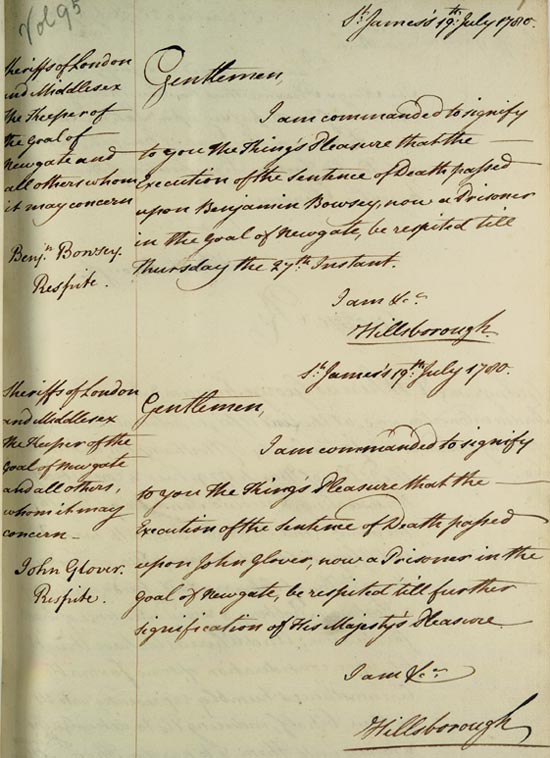 Vol 95
St. James's 19th. July 1780.
Sheriffs of London
and Middlesex
the Keeper of
the Goal of
Newgate and
all others whom
it may concern
Benjn. Bowsey.
Respite.
Gentlemen,
I am commanded to signify
to you the King's Pleasure that the
Execution of the Sentence of Death passed
upon Benjamin Bowsey, now a Prisoner
in the Goal of Newgate, be respited till
Thursday the 27th. Instant.
I am &c.
Hillsborough.
St. James's 19th. July 1780.
Sheriffs of London
and Middlesex
the Keeper of the
Goal of Newgate
and all others,
whom it may
concern
John Glover.
Respite.
Gentlemen,
I am commanded to signify
to you the King's Pleasure that the
Execution of the Sentence of Death passed
upon John Glover, now a Prisoner in the
Goal of Newgate, be respited till further
signification of His Majesty's Pleasure
I am &c.
Hillsborough